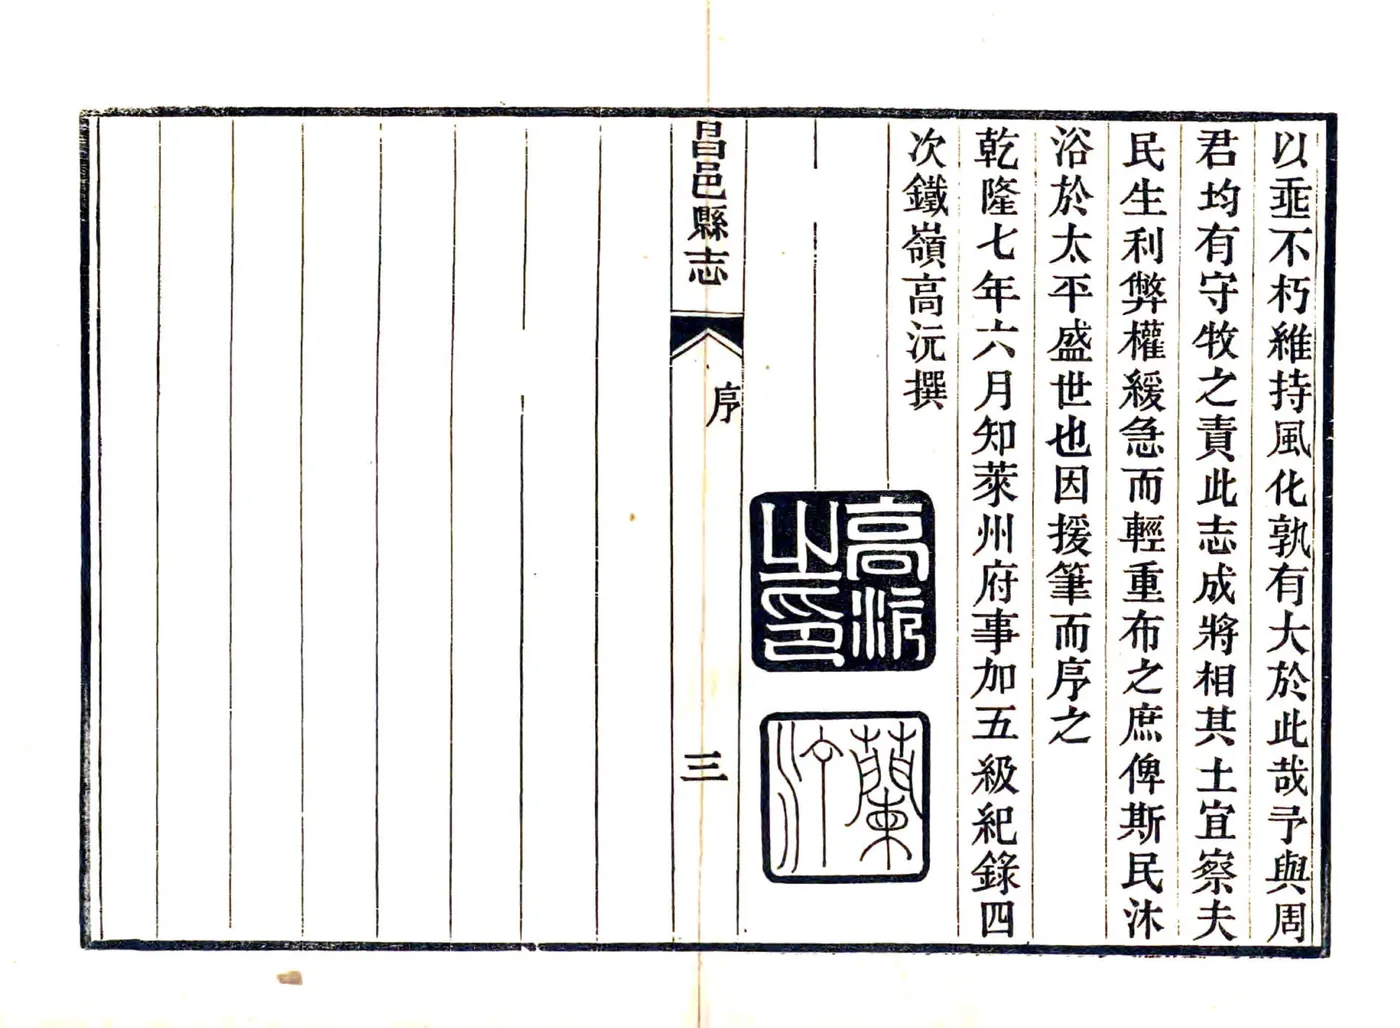 以垂不朽維持風化孰有大於此哉予與周
君均有守牧之責此志成將相其土宜察夫
民生利弊權緩急而輕重布之庶俾斯民沐
浴於太平盛世也因援筆而序之
乾隆七年六月知萊州府事加五級紀錄四
次鐵嶺高沅撰
高沅
之印
蘭
昌邑縣志
序
三